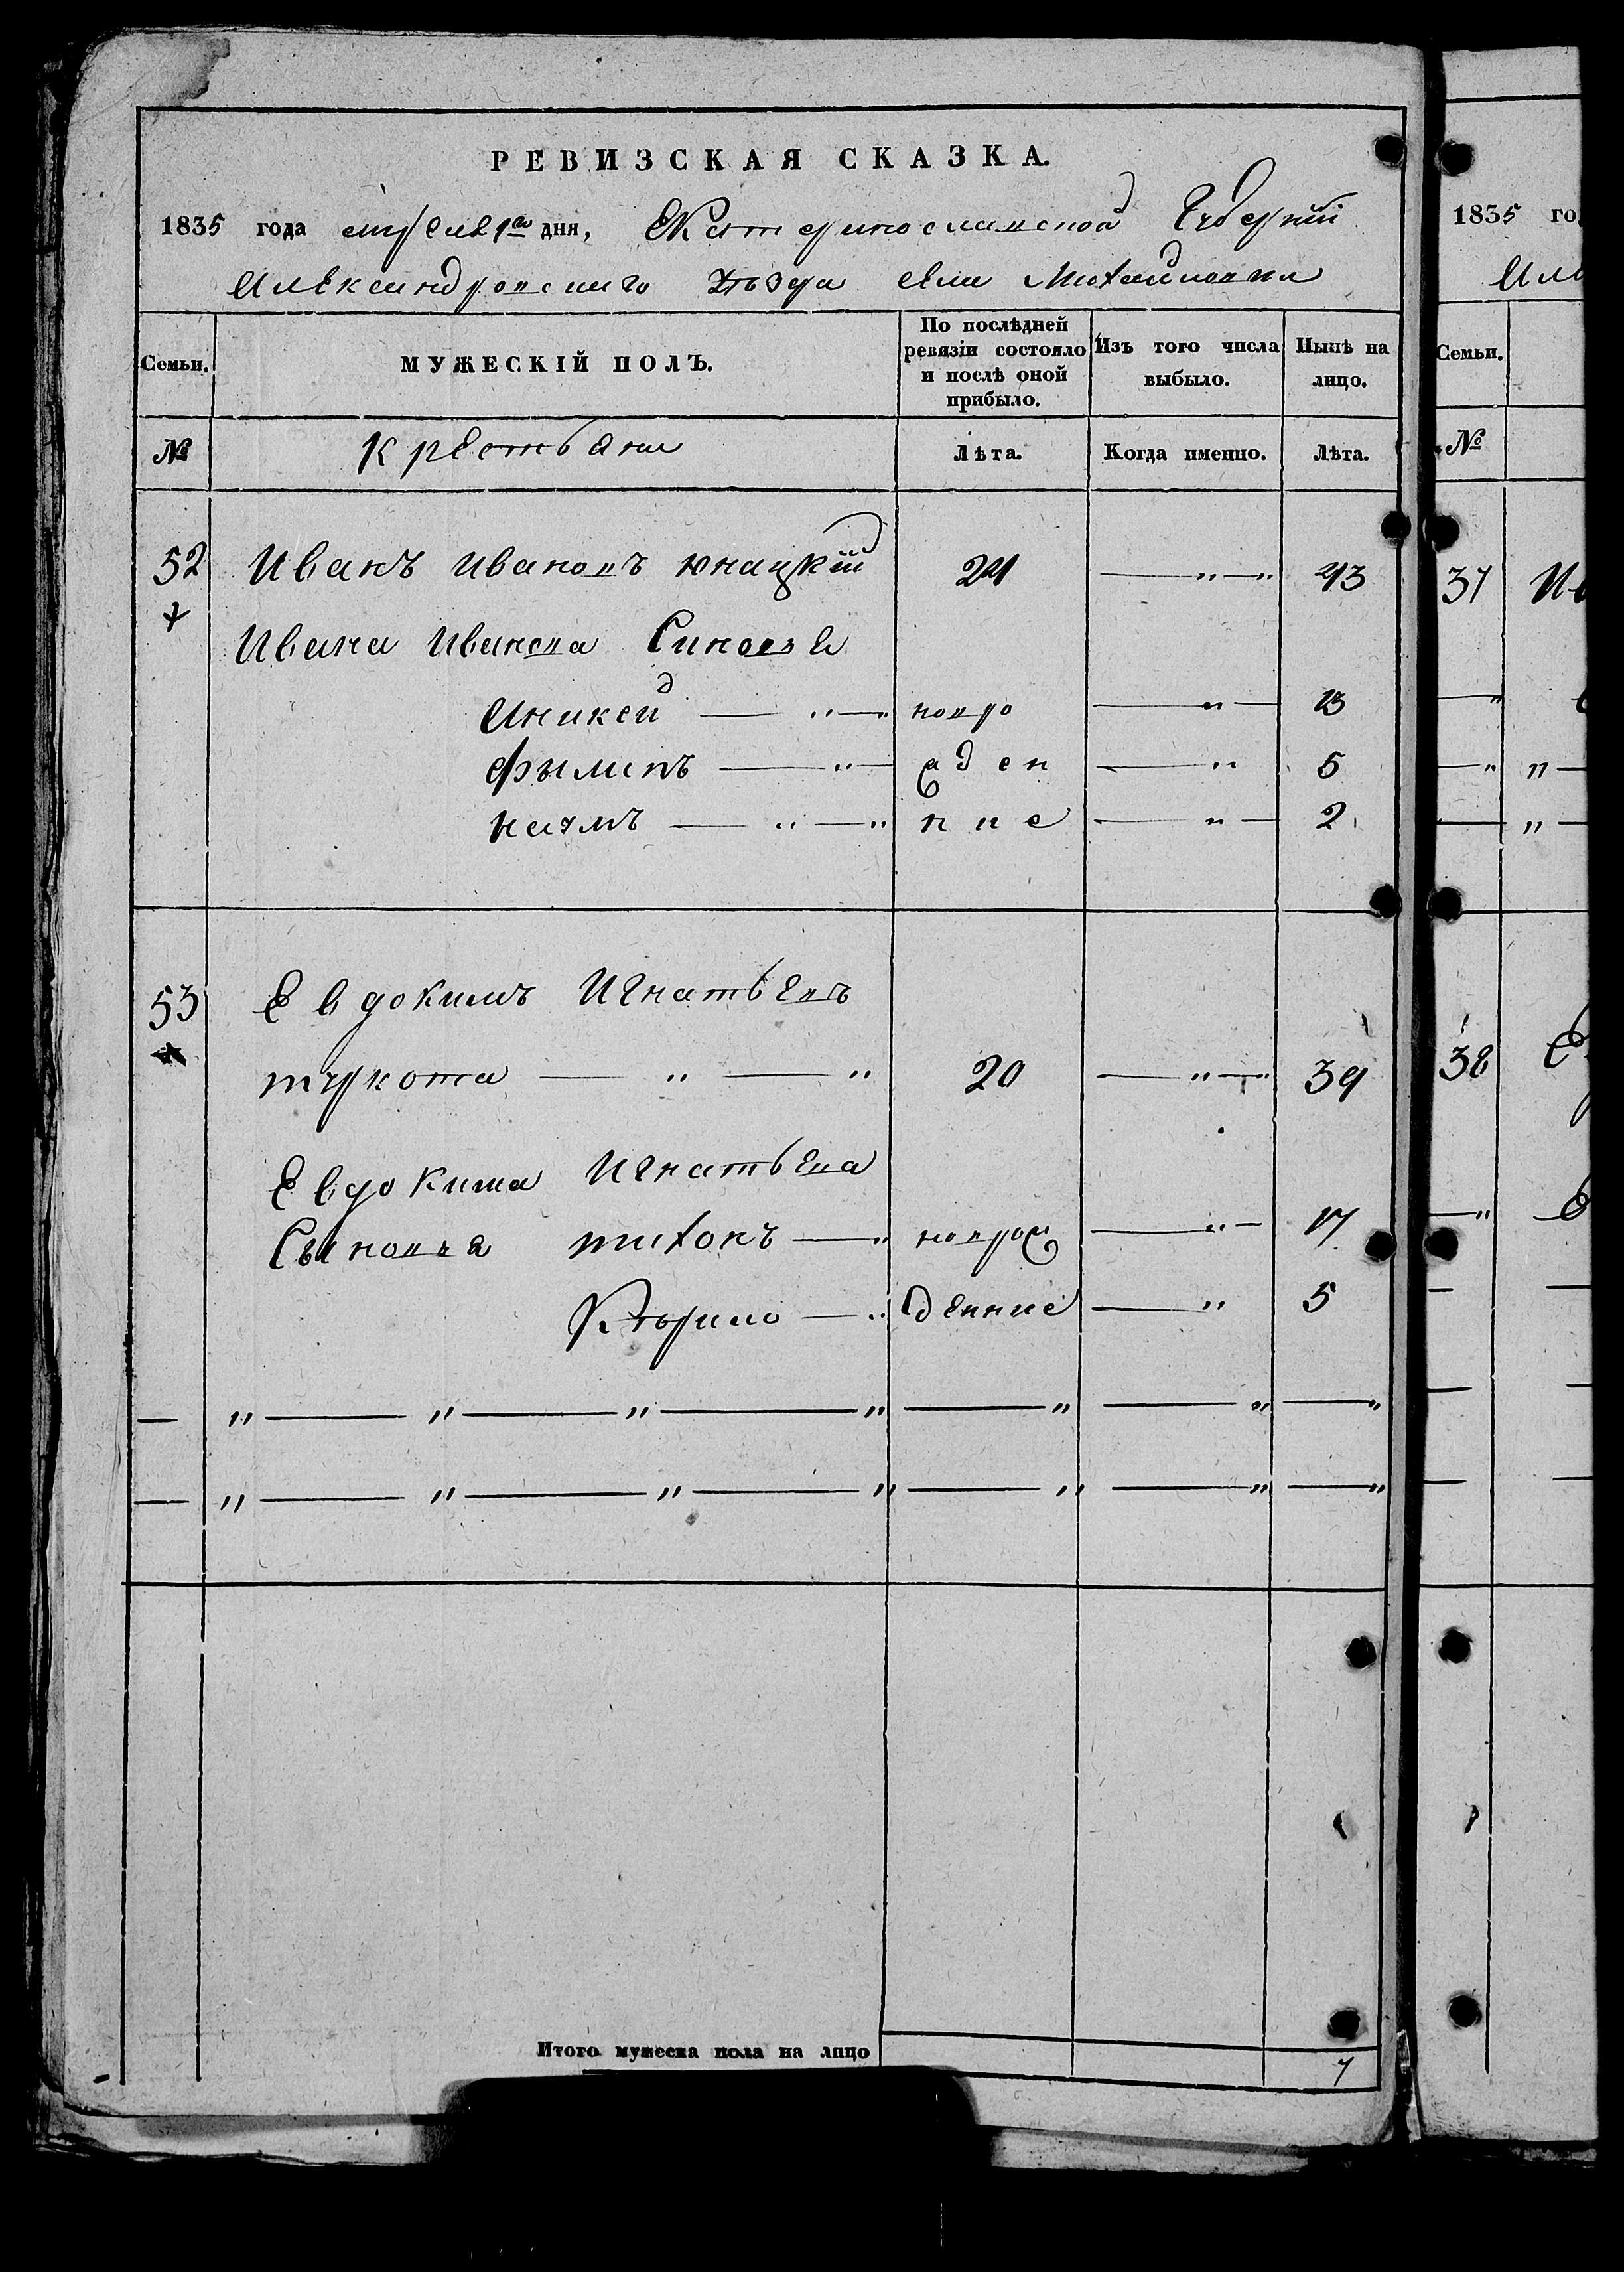 РЕВИЗСКАЯ СКАЗКА.
1835 года апреля 1го дня, Екатеринославской Губернїи
Александровскаго уъзда села Михайловки
Семьи. МУЖЕСКІЙ ПОЛЪ. По послѣдней ревизіи состояло и послѣ оной прибыло. Изъ того числа выбыло. Нынѣ на лицо.
№ Крестьяни Лѣта. Когда именно. Лѣта.
52 Иванъ Ивановъ Юнацкїй 24 — " — " 43
Ивана Иванова Синовья
Аникей — " — " новро — " — 13
Филипъ — " — жден — " 5
Наумъ — " — " ние — " — 2
53 Евдокимъ Игнатьевъ
Туркота — " — " 20 — " — " 39
Евдокима Игнатьева
Сыновья Тихонъ — " новрож — " — 17
Кърило — " дение — " 5
— " — " — " — " — " — " — "
— " — " — " — " — " — " — "
Итого мужеска пола на лицо 7
1835 го
Але
Семьи.
№
37 Ив
38 Е